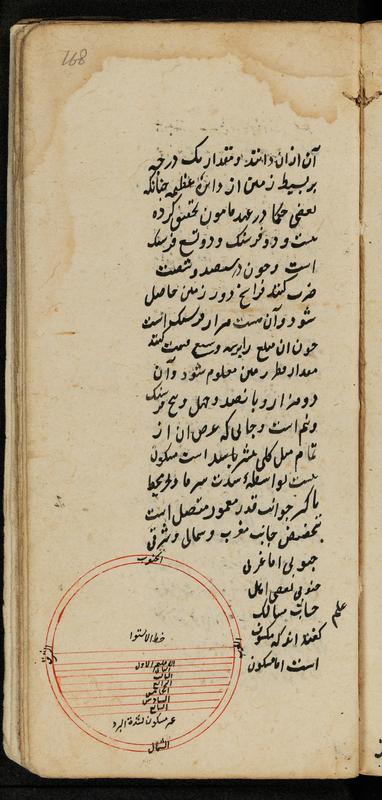 168
آن از ان دانند و مقدار یک درجه
بر بسیط زمین از دایرهٔ عظیمه چنانکه
بعضی حکما در عهد مامون تحقیق کرده
بیست و دو فرسنک و دو تسع فرسنک
است و چون در سیصد و شصت
ضرب کنند فراسخ دور زمین حاصل
شود و آن هشت هزار فرسنک است
چون ان مبلغ را بر سه و سبع قسمت کنند
مقدار قطر زمین معلوم شود و آن
دو هزار و پانصد و چهل و پنج فرسنک
و نیم است و جایی که عرض ان از
تمام میل کلی بیشتر باشد است مسکون
نیست بواسطهٔ شدت سرما و
باکثر جوانب قدر معمور متصل است
بتخصیص جانب مغرب و شمالی و شرقی
جنوبی اما غربی
جنوبی بعضی اهل
علم
مسالک
کفته اند که مسکون
است اما مسکون
الجنوب
خط الاستوا
المشرق
المغرب
الاقلیم الاول
الثانی
الثالث
الرابع
الخامس
السادس
السابع
غیر مسکون لشدة البرد
الشمال